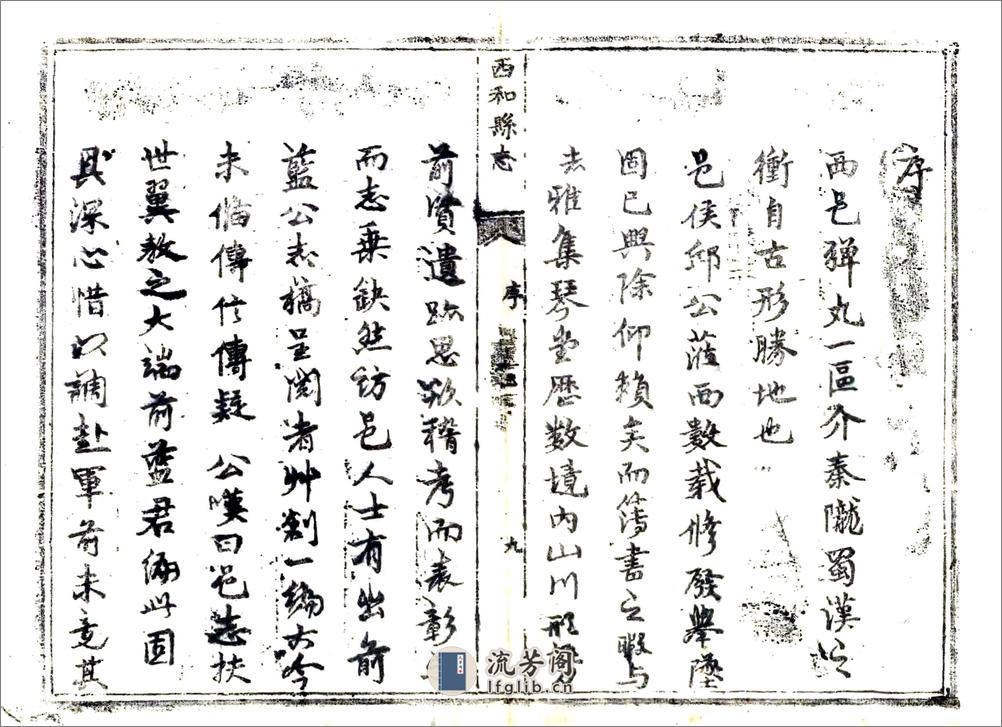 序
西邑弹丸一區介秦隴蜀漢之
衝自古形勝地也
邑侯邱公蒞西數载修廢舉墜
固已興除仰賴矣而簿書之暇与
去雅集琴堂歷数境内山川形勝
西和縣志
序
九
前賢遺跡思欲稽考而表彰
而志乗缺然訪邑人士有出前
藍公志稿呈閲者艸創一編古今
未備傳信傳疑 公嘆曰邑志扶
世翼教之大端前藍君編此固
具深心惜以調赴軍前未竟其
流芳阁
lfglib.cn